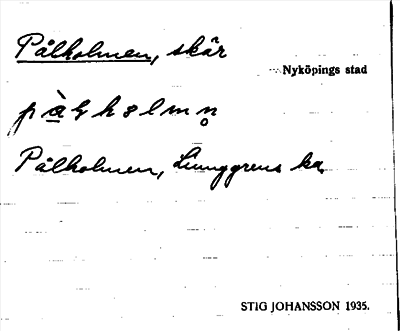 Pålholmen, skär
Nyköpings stad
Pålholmen, Ljunggrens ka.
STIG JOHANSSON 1935.